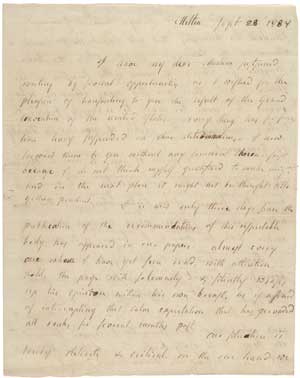 Milton Sept 23 1787
I have my dear Madam
writing by several opportunities as I wished for the
pleasure of transmitting to you the result of the Grand
Convention of the united States. every thing has for some
time been suspended in their deliberations, I now
forward them to you without any
do not think myself qualified to make any
and in the next place it might not be thought
prudent.
It is only three days since the
publication of the recommendation of this respectable
body has appeared in our papers. almost every
one whom I have yet seen reads with attention
folds the paper with solemnity & silently wraps
up his opinion within his own breast, as if afraid
of interrupting that calm expectation that has pervaded
all ranks for several months past.
Our situation is
truly delicate & critical. on the one hand we